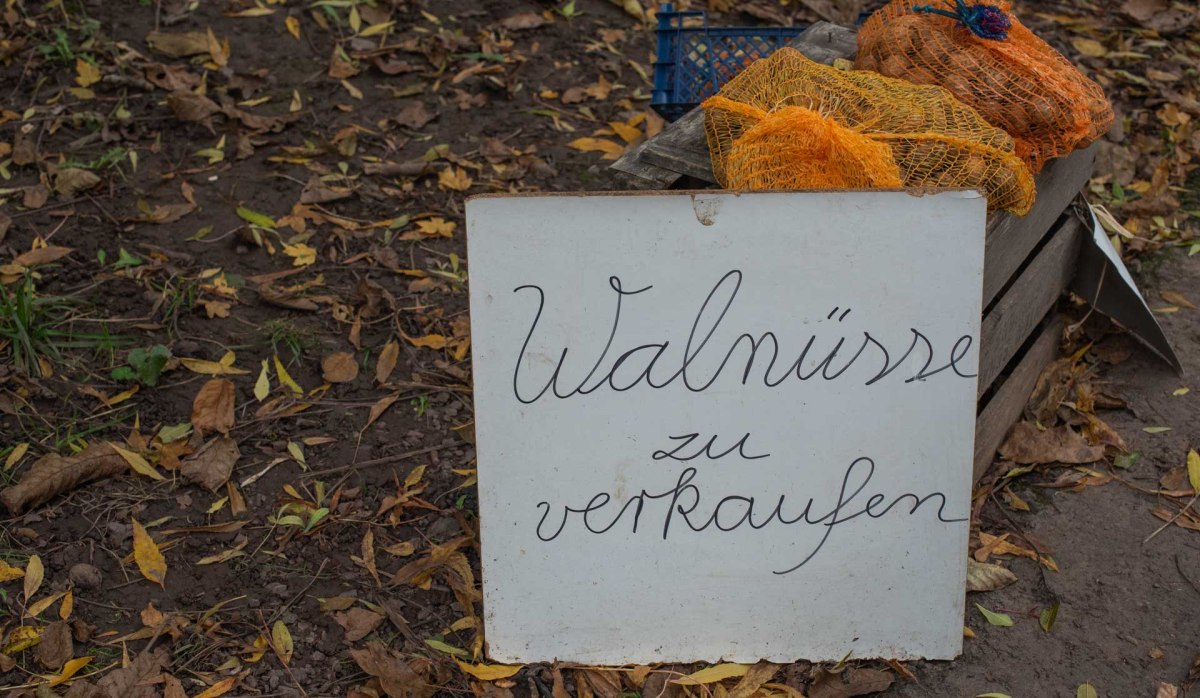 Walnüsse
zu
verkaufen